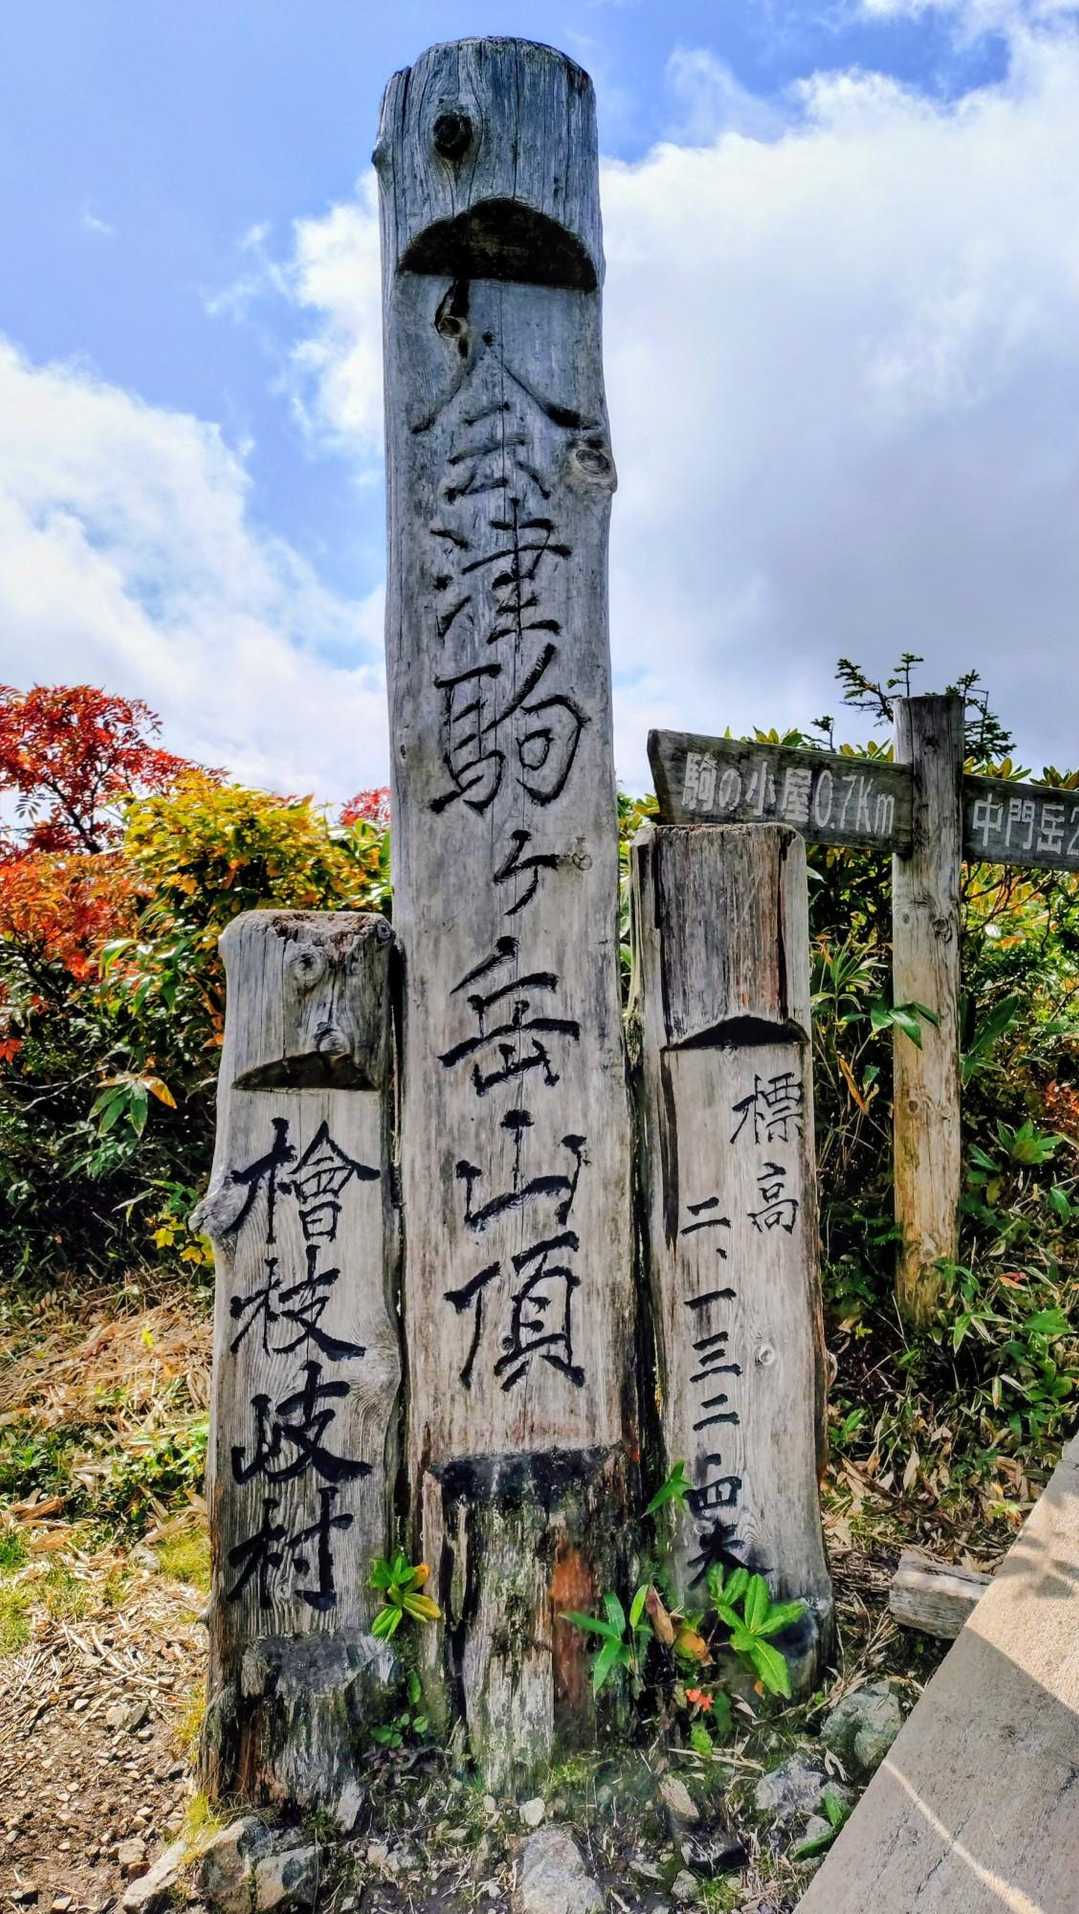 会津駒ヶ岳山頂
檜枝岐村
標高
二、一三二・四米
駒の小屋0.7Km
中門岳2